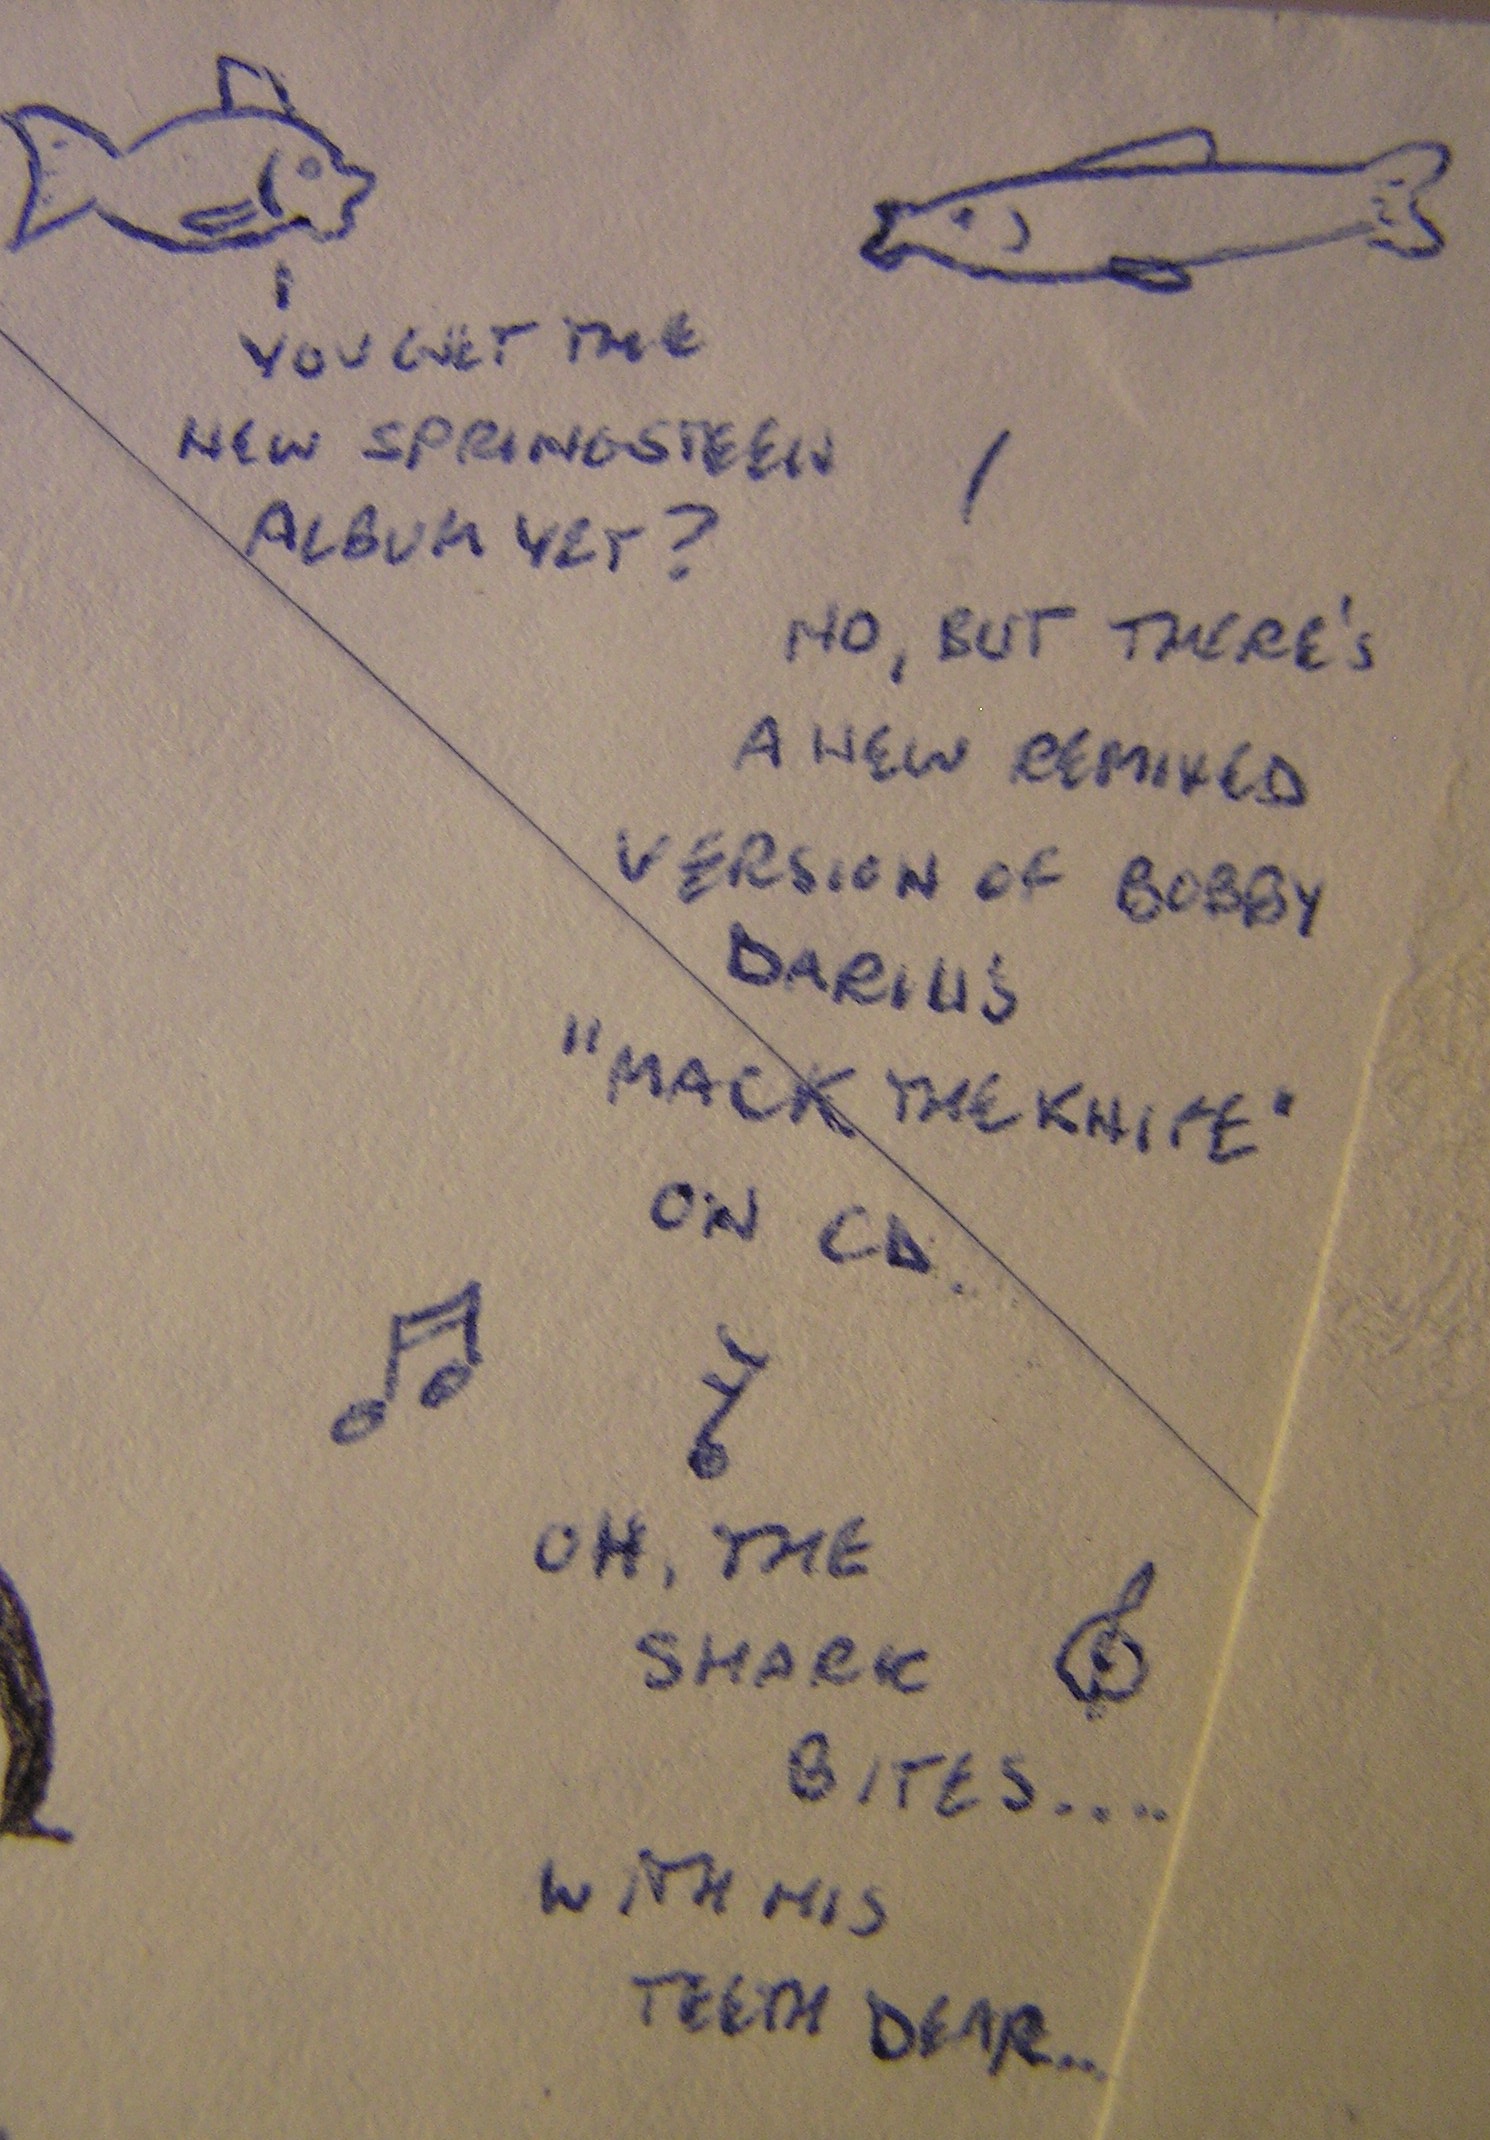 YOU GET THE
NEW SPRINGSTEEN
ALBUM YET?
NO, BUT THERE'S
A NEW REMIXED
VERSION OF BOBBY
DARIN'S
"MACK THE KNIFE"
ON CD.
OH, THE
SHARK
BITES....
WITH HIS
TEETH DEAR...